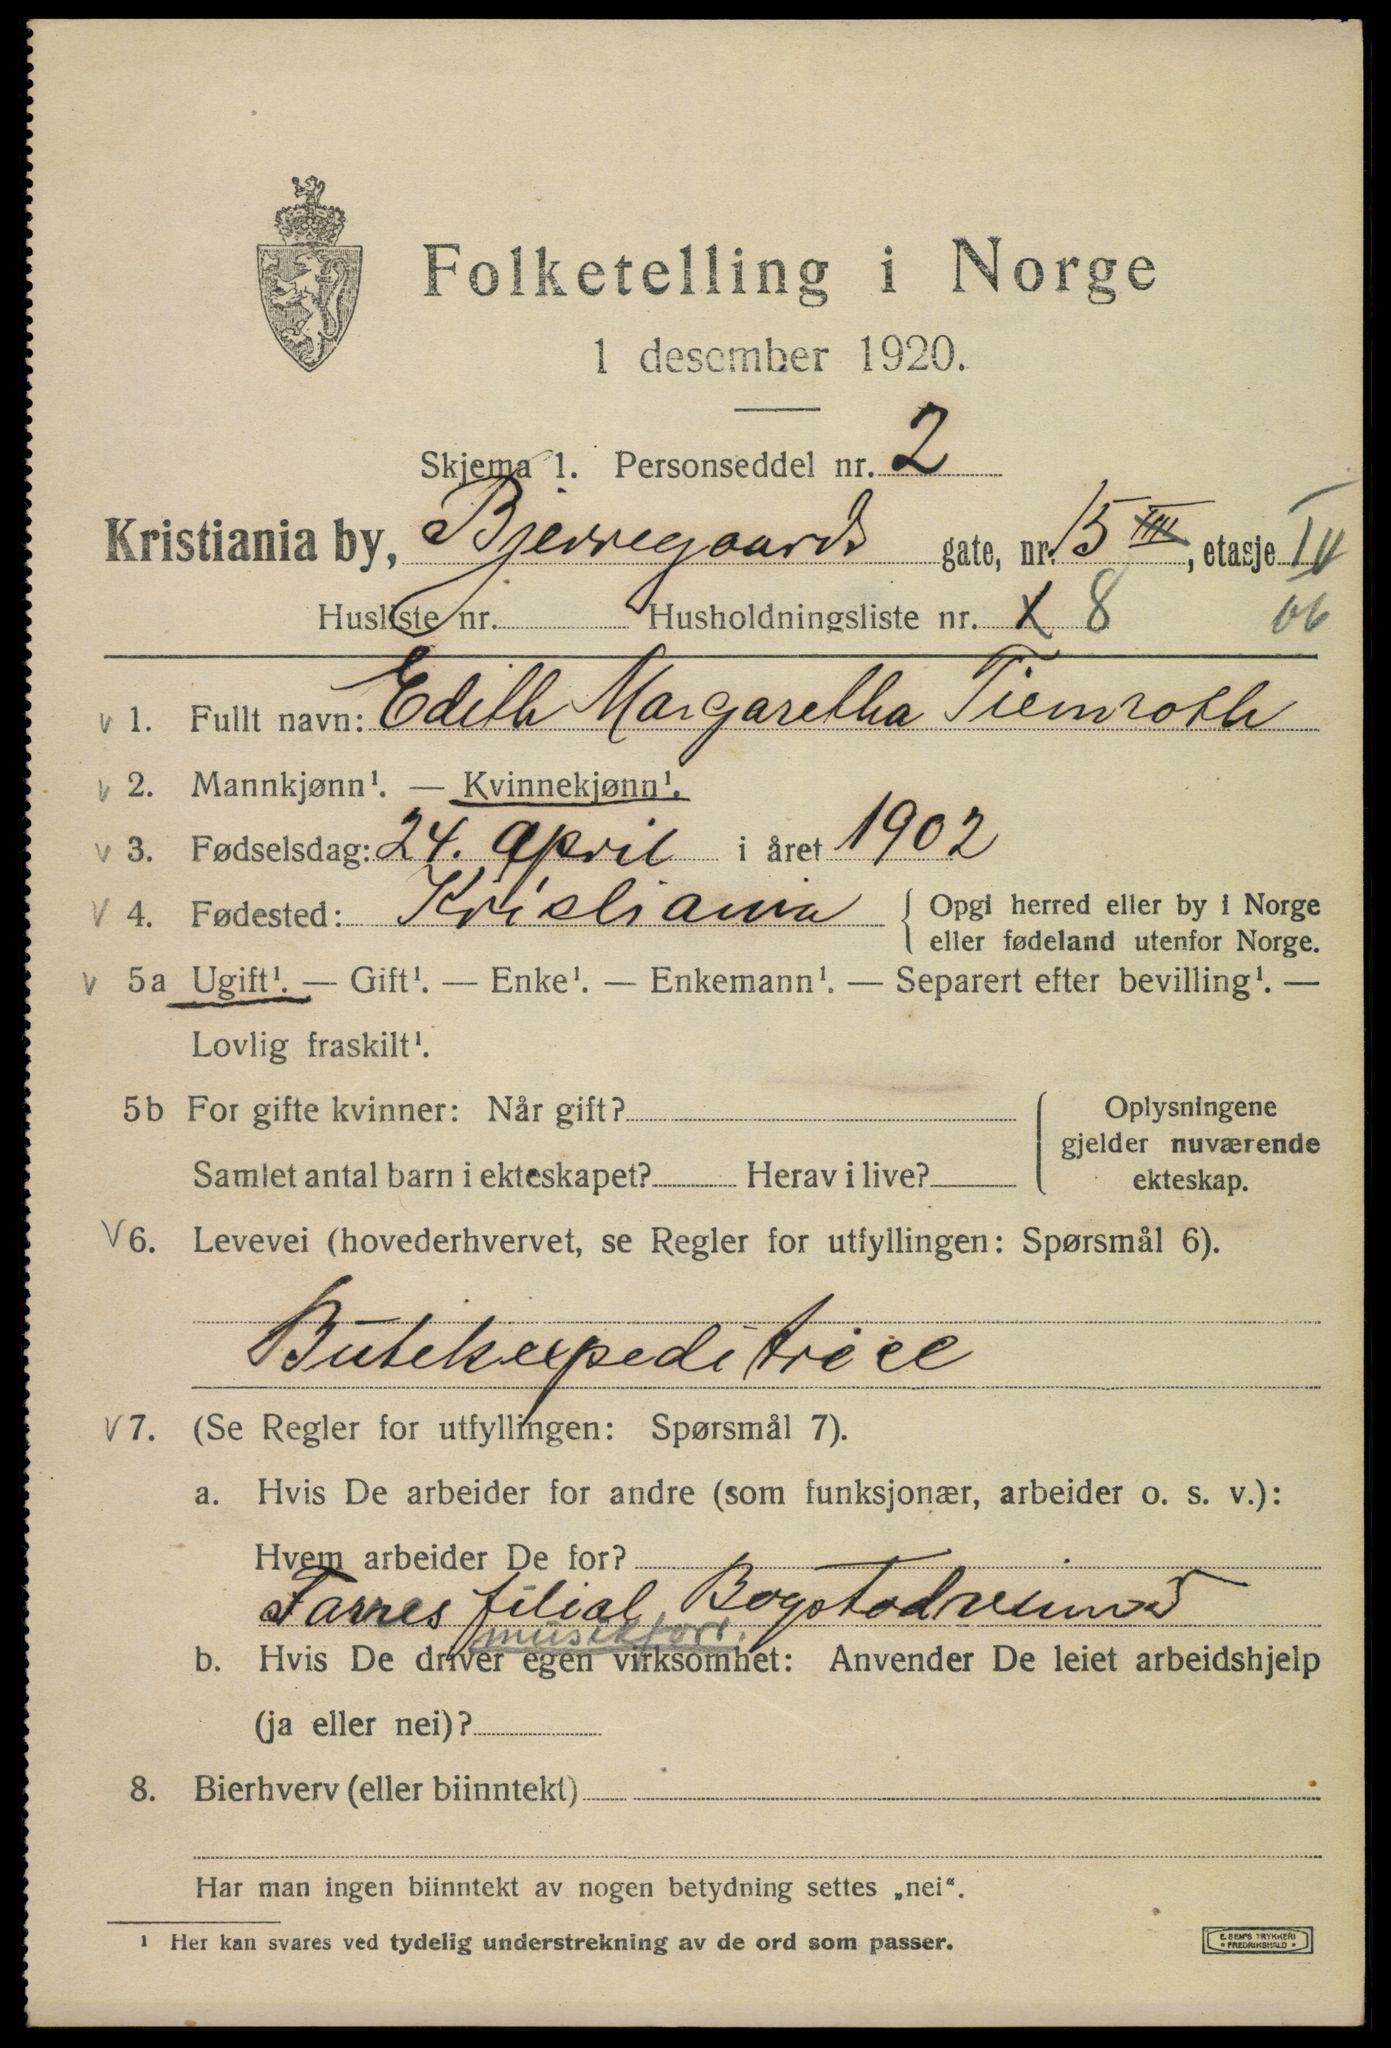 Folketelling i Norge
1 desember 1920.
Skjema 1. Personseddel nr. 2
Kristiania by, Bjerregaards gate, nr. 15 IIII, etasje IV
Husliste nr. Husholdningsliste nr. 8
V 1. Fullt navn: Edith Margaretha Tiemroth
V 2. Mannkjønn¹. — Kvinnekjønn¹.
V 3. Fødselsdag: 24. april i året 1902
V 4. Fødested: Kristiania { Opgi herred eller by i Norge
eller fødeland utenfor Norge.
V 5a Ugift¹. — Gift¹. — Enke¹. — Enkemann¹. — Separert efter bevilling¹. —
Lovlig fraskilt¹.
5b For gifte kvinner: Når gift? { Oplysningene
gjelder nuværende
Samlet antal barn i ekteskapet? Herav i live? ekteskap.
V 6. Levevei (hovederhvervet, se Regler for utfyllingen: Spørsmål 6).
Butikexpeditrice
V 7. (Se Regler for utfyllingen: Spørsmål 7).
a. Hvis De arbeider for andre (som funksjonær, arbeider o. s. v.):
Hvem arbeider De for?
filial
musikforr.
b. Hvis De driver egen virksomhet: Anvender De leiet arbeidshjelp
(ja eller nei)?
8. Bierhverv (eller biinntekt)
Har man ingen biinntekt av nogen betydning settes „nei“.
¹ Her kan svares ved tydelig understrekning av de ord som passer.
E. SEM'S TRYKKERI
• FREDRIKSHALD •